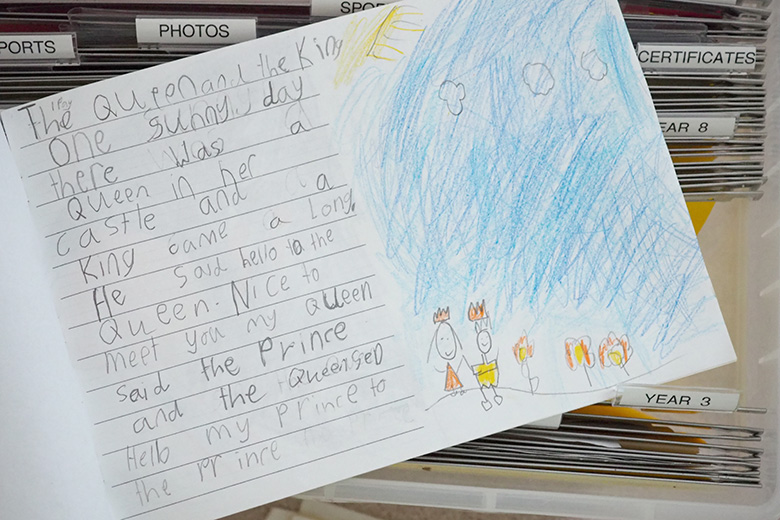 SPO
PORTS
PHOTOS
CERTIFICATES
EAR 8
YEAR 3
The Queen and the King
One sunny day
there was a
Queen in her
castle and a
King came a Long.
He said hello to the
Queen. Nice to
meet you my Queen
said the Prince
and the Queen sed
Hello my prince to
the prince